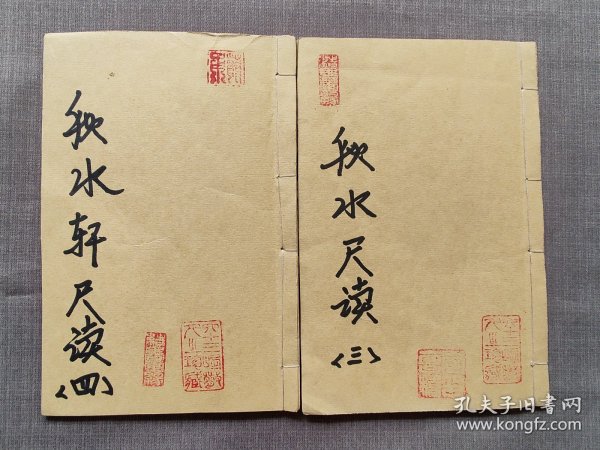 秋水轩尺读
〈四〉
秋水尺读
〈三〉
孔夫子旧书网
www.kongfz.com